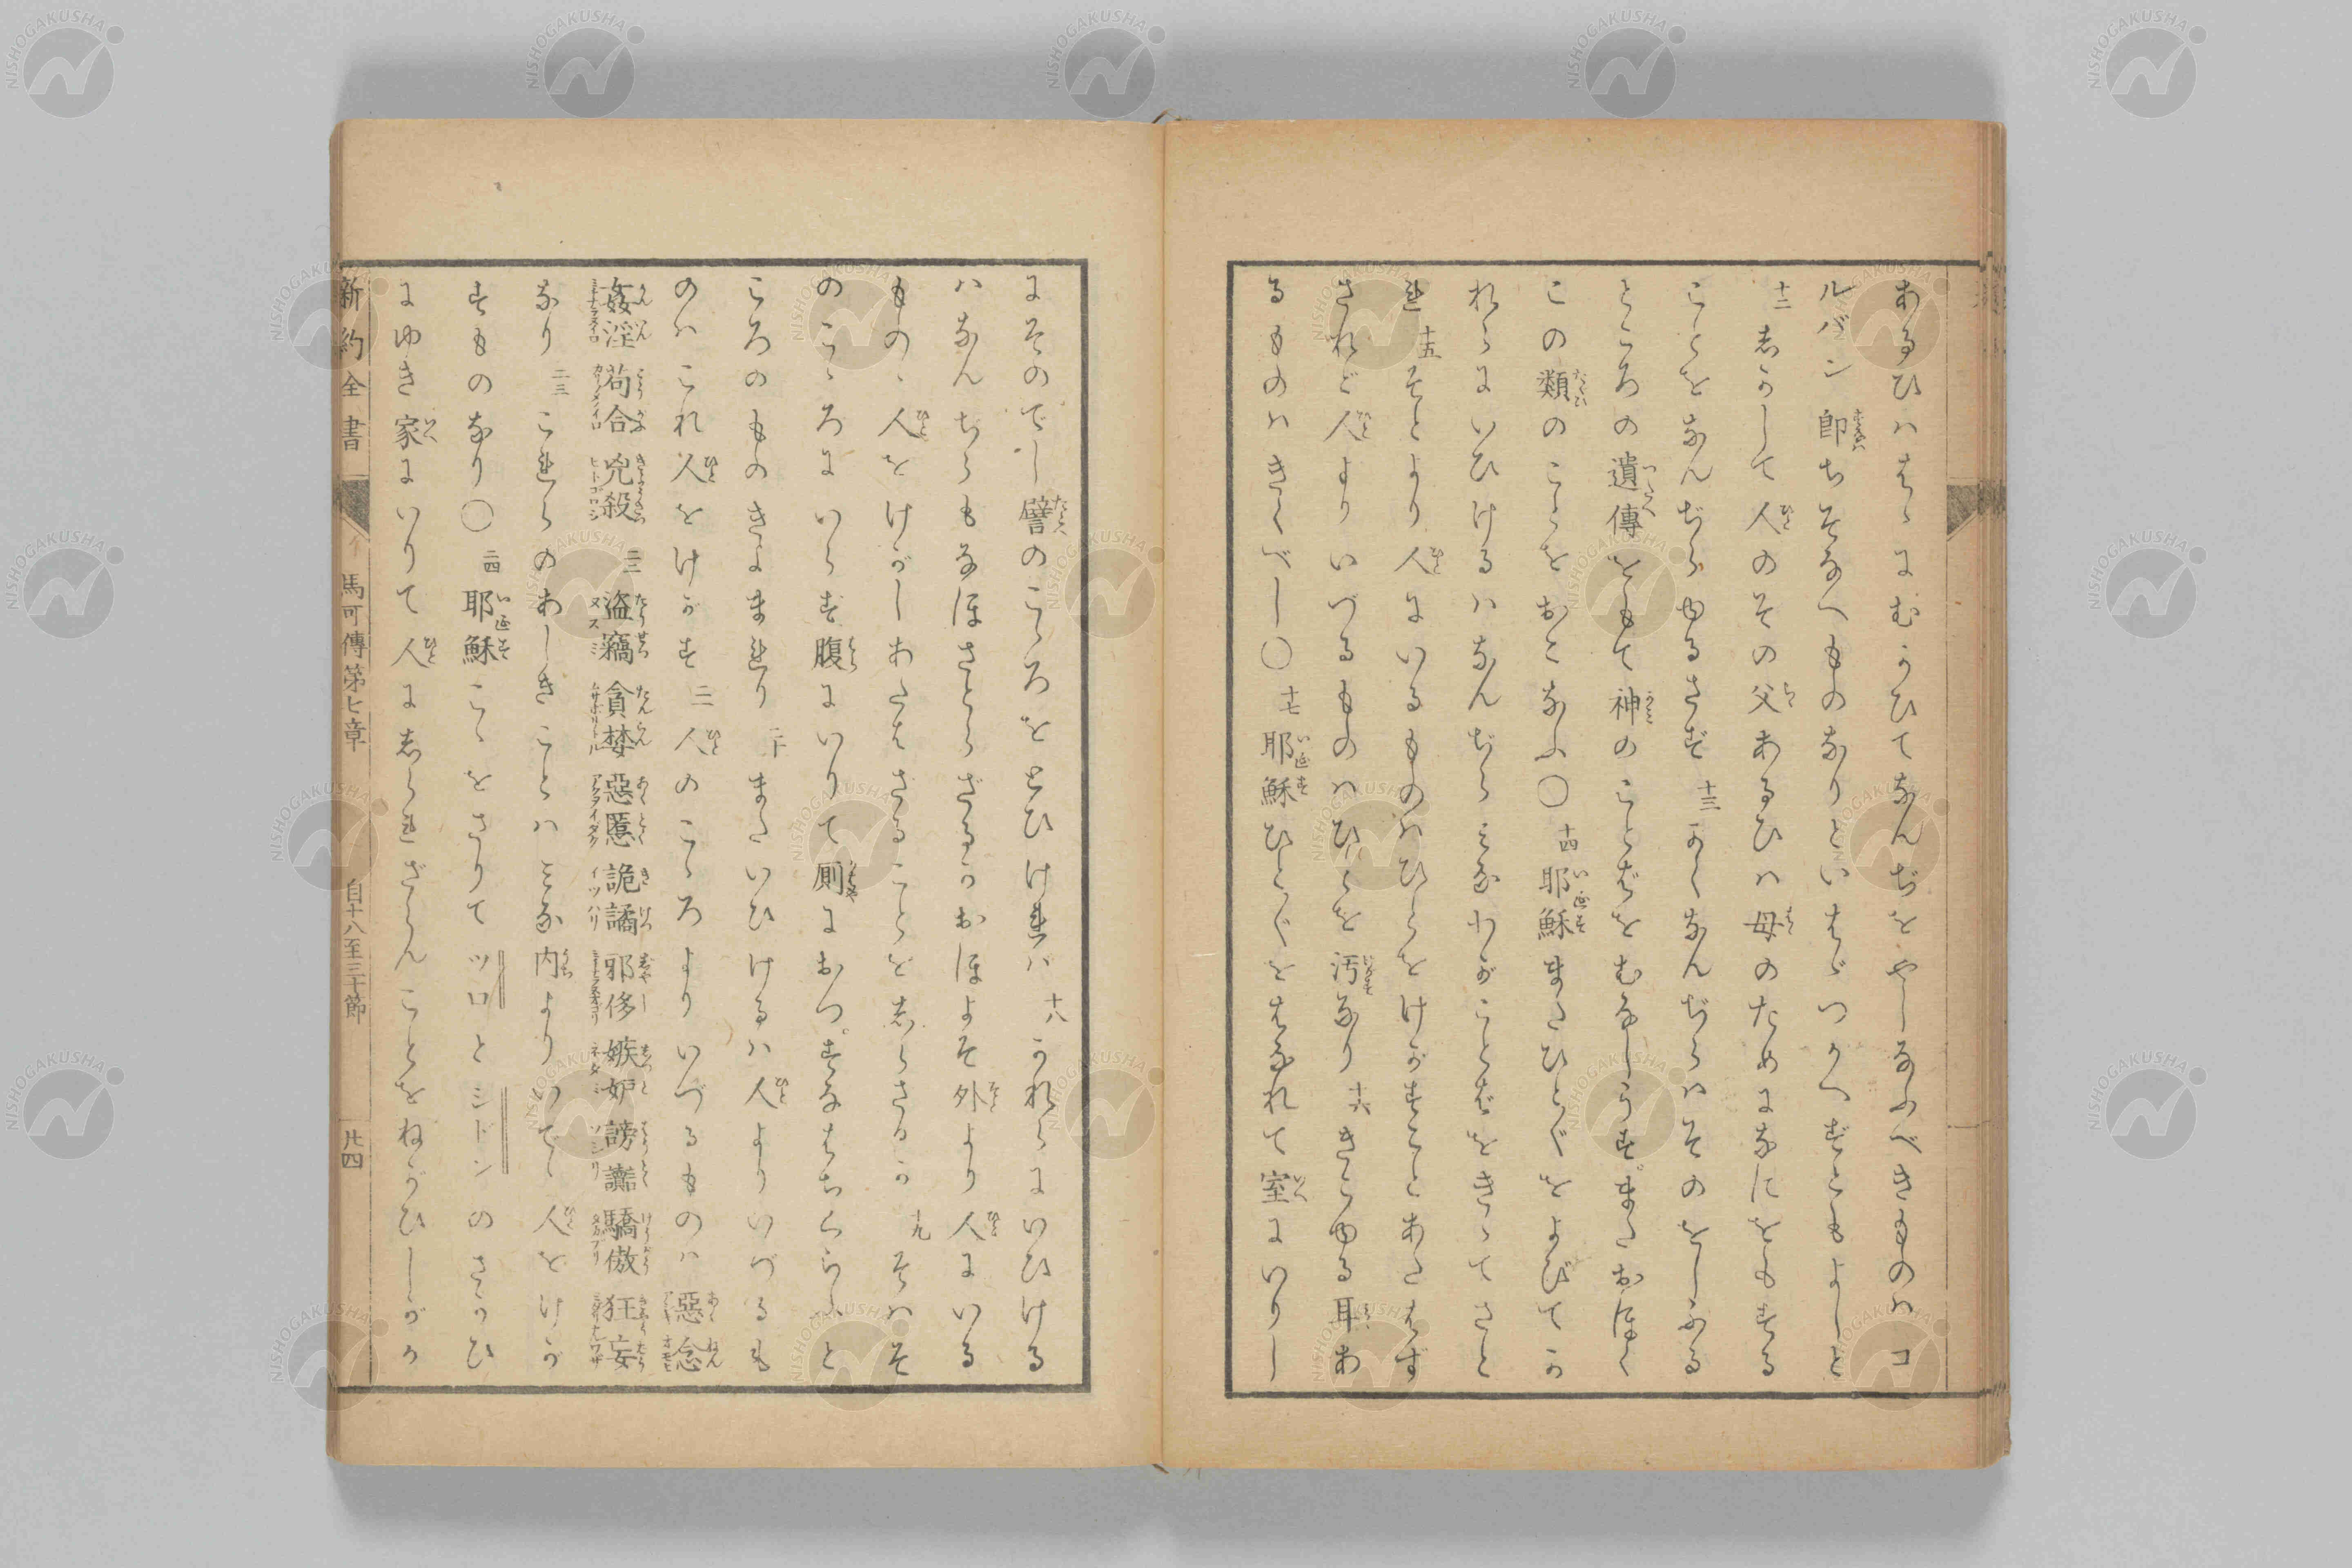 あるひハはゝにむかひてなんぢをやしなふべきものハコ
ルバン即ちそなへものなりといはゞつかへずともよしと
十二 しかして人のその父あるひハ母のためになにをもする
ことをなんぢらゆるさず 十三 かくなんぢらハそのをしふる
ところの遺傳をもて神のことばをむなしうす。またおほく
この類のことをおこなふ〇 十四 耶穌またひとびとをよびてか
れらにいひけるハなんぢらみなわがことばをきゝてさと
れ 十五 そとより人にいるものハひとをけがすことあたはず
されど人よりいづるものハひとを汚なり 十六 きこゆる耳あ
るものハきくべし〇 十七 耶穌ひとびとをはなれて室にいりし
にそのでし譬のこゝろをとひければ 十八 かれらにいひける
ハなんぢらもなほさとらざるかおほよそ外より人にいる
ものゝ人をけがしあたはざることをしらざるか 十九 そハそ
のこゝろにいらず腹にいりて厠におつ。すなはちくらふと
ころのものきよまれり 二十 またいひけるハ人よりいづるも
のハこれ人をけがす 二一 人のこゝろよりいづるものハ惡念
姦淫苟合兇殺 二二 盜竊貪婪惡慝詭譎邪侈嫉妒謗讟驕傲狂妄
なり 二三 これらのあしきことハみな内よりいでゝ人をけが
すものなり〇 二四 耶穌こゝをさりてツロとシドンのさかひ
にゆき家にいりて人にしられざらんことをねがひしがか
新約全書 馬可傳第七章 自十八至二十節 廿四
NISHOGAKUSHA